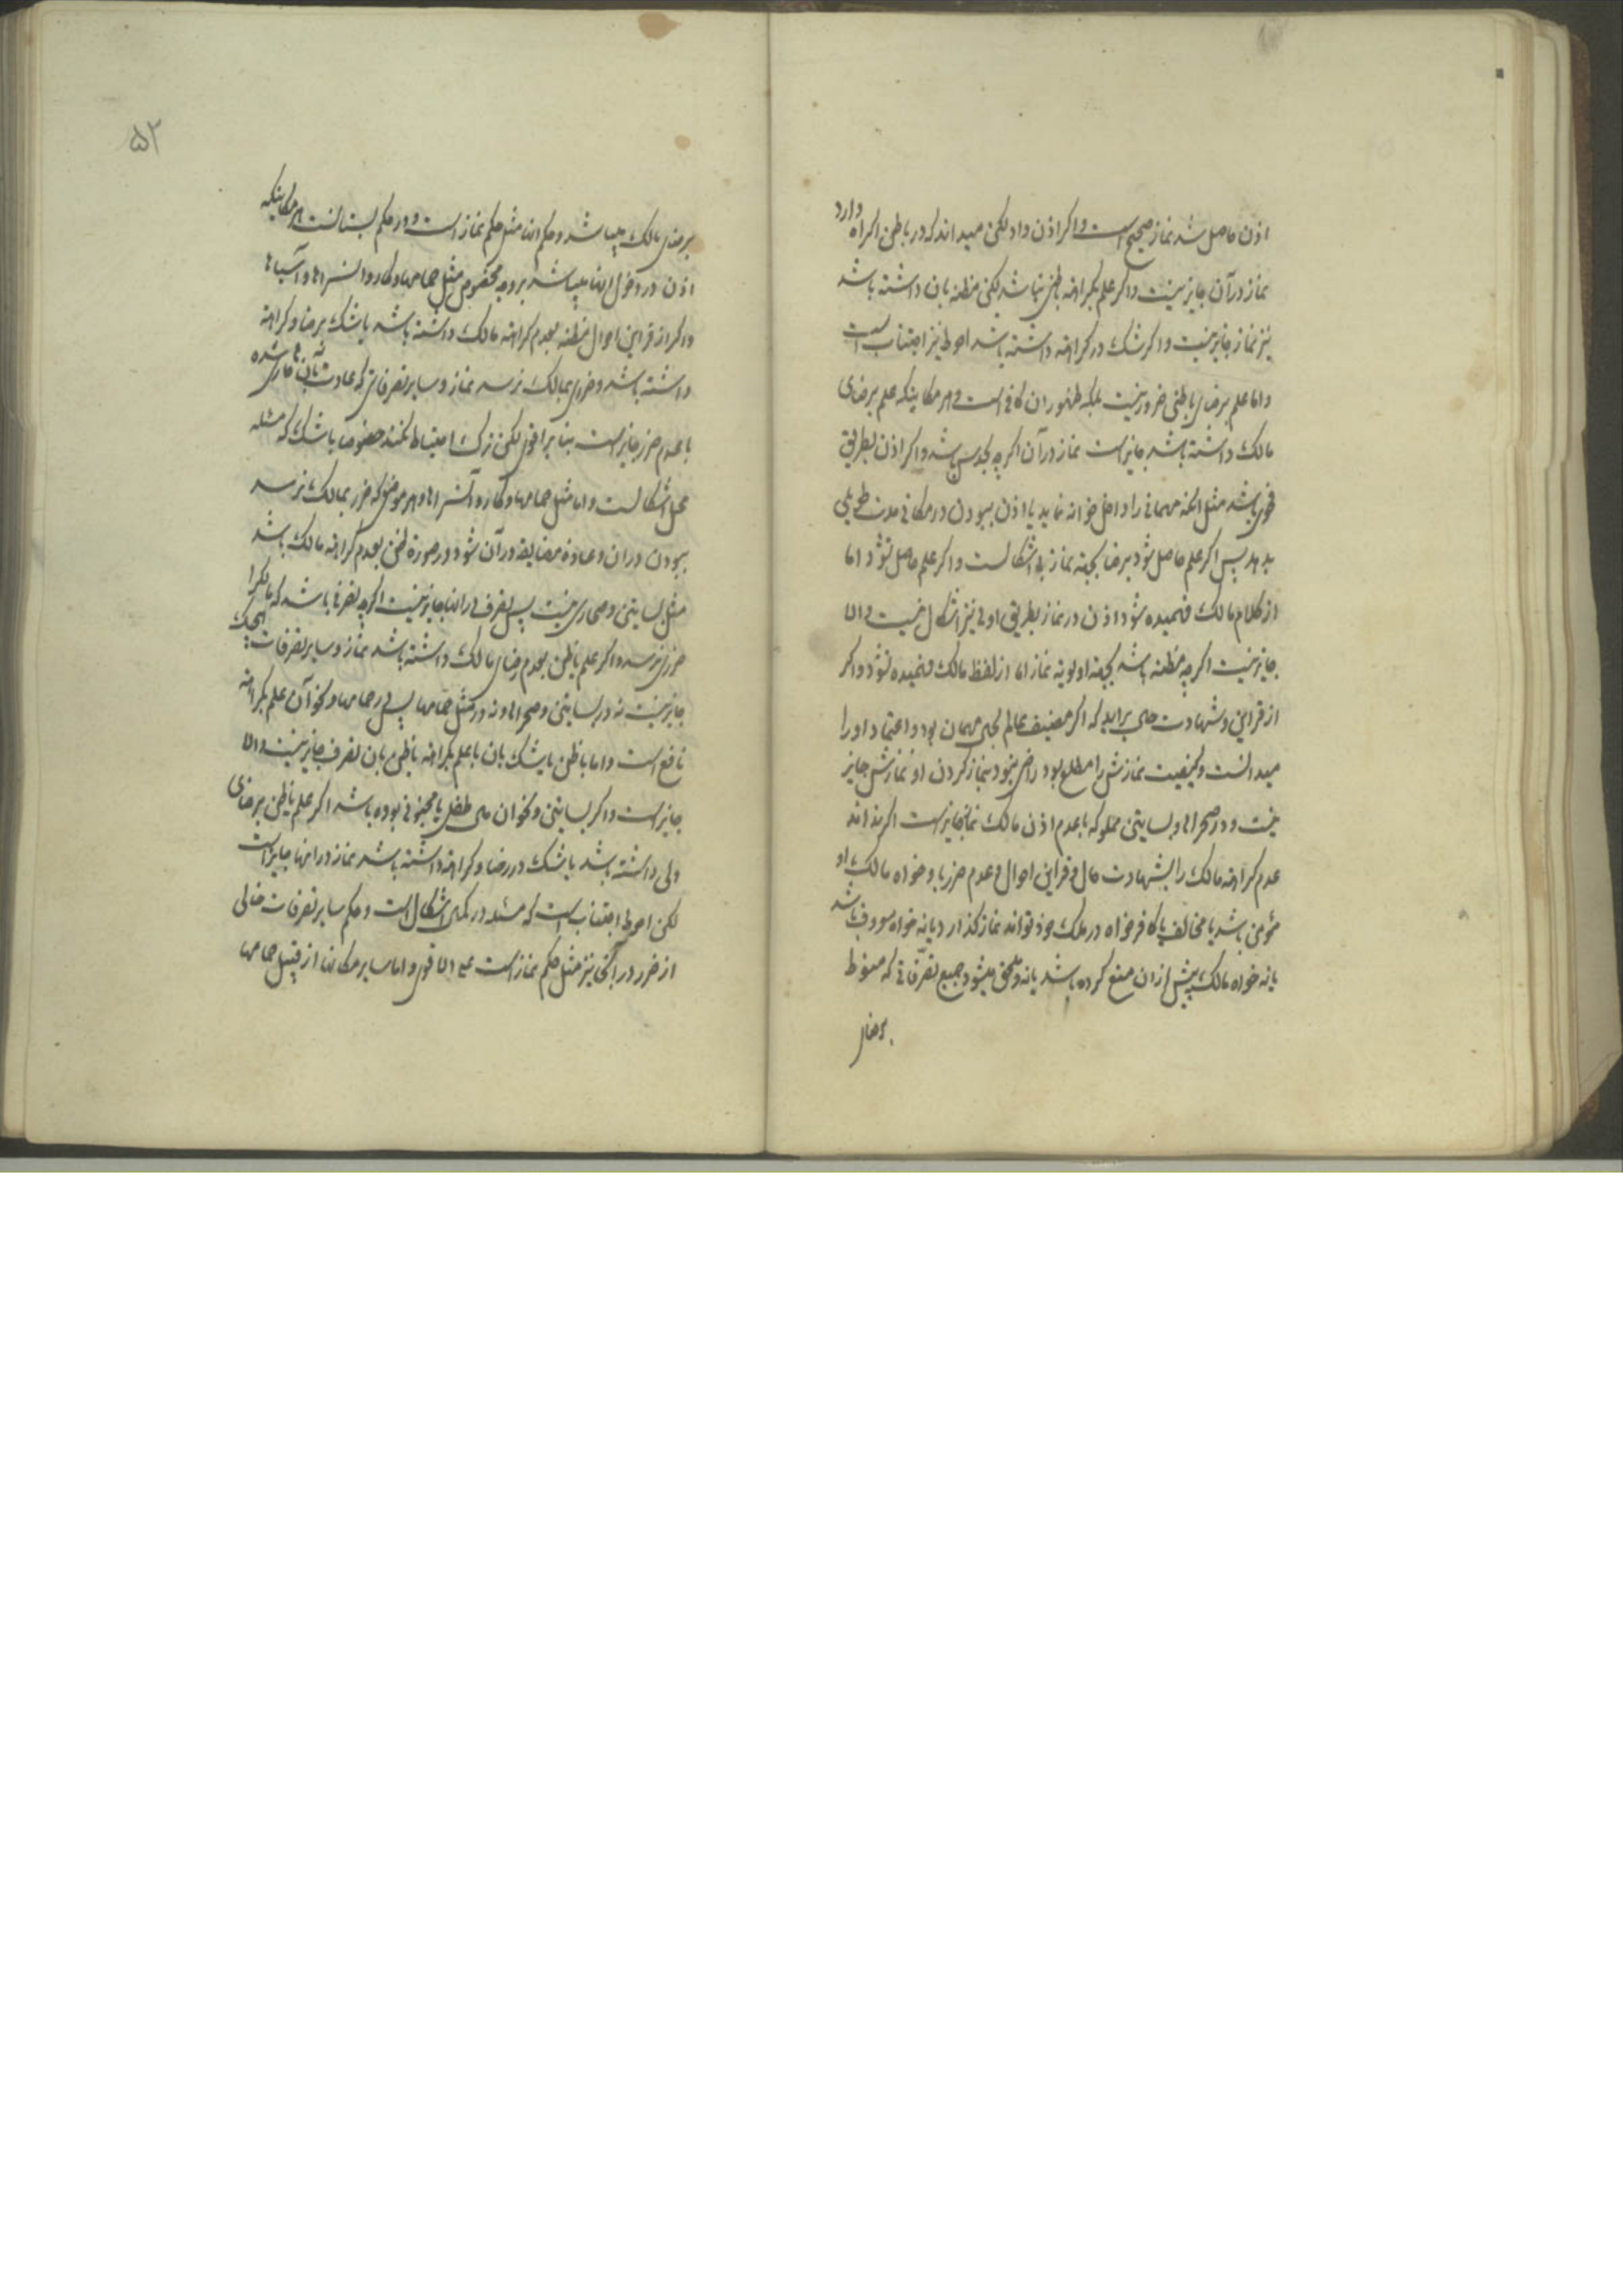 اذن حاصل شد نماز صحیح است و اکر اذن داد لکن میداند که در باطن اکراه دارد
نماز در آن جایز نیست و اکر علم بکراهة باطنی نباشد لکن مظنه بان داشته باشد
نیز نماز جایز نیست و اکر شک در کراهة داشته باشد احوط نیز اجتناب است
و اما علم برضای باطنی ضرور نیست بلکه ظهور ان کافی است و هر مکانیکه علم برضای
مالک داشته باشد جایز است نماز در آن اکرچه بحدس باشد و اکر اذن بطریق
فحوی باشد مثل انکه مهمانی را داخل خوانه نماید یا اذن ببودن در مکانی مدت طویلی
بدهد پس اکر علم حاصل شود برضا بجهة نماز بی اشکالست و اکر علم حاصل نشود اما
از کلام مالک فهمیده شود اذن در نماز بطریق اولی نیز اشکال نیست و الا
جایز نیست اکرچه مظنه باشد بجهة اولویة نماز اما از لفظ مالک فهمیده نشود و اکر
از قراین و شهادت حالی براید که اکر مضیف عالم بحال مهمان بود و اعتقاد او را
میدانست و کیفیت نمازش را مطلع بود راضی نبود بنماز کردن او نمازش جایز
نیست و در صحراها و بساتین مملوکه با عدم اذن مالک نماز جایز است اکر بداند
عدم کراهة مالک را بشهادت حال و قراین احوال و عدم ضرر باو خواه مالک او
مؤمن باشد یا مخالف یا کافر خواه در ملک خود تواند نماز کذارد یا نه خواه معروف باشد
یا نه خواه مالک پیش از ان منع کرده باشد یا نه و ملحق میشود جمیع تصرّفاتی که منوط
برضای
برضای مالک میباشد و حکم انها مثل حکم نماز است و در حکم بستانست هر مکانیکه
اذن در دخول انها میباشد بر وجه مخصوص مثل حمامها و کاروانسراها و آسیاها
و اکر از قراین احوال مظنه بعدم کراهة مالک داشته باشد یا شک برضا و کراهة
داشته باشد و ضرری بمالک نرسد نماز و سایر تصرفاتی که عادت بآنها جاری شده
با عدم ضرر جایز است بنا بر اقوی لکن ترک احتیاط نکنند خصوصا با شک که مسئله
محل اشکالست و اما مثل حمامها و کاروانسراها و هر موضعی که ضرر بمالک نرسد
ببودن در ان و عادة مضایقه در آن شود در صورة ظن بعدم کراهة مالک باشد
مثل بساتین و صحاری نیست پس تصرف در انها جایز نیست اکرچه تصرفی باشد که مالک را
ضرری نرسد و اکر علم یا ظن بعدم رضای مالک داشته باشد نماز و سایر تصرفات هیچیک
جایز نیست نه در بساتین و صحراها و نه در مثل حمامها پس در حمامها و نحو آن علم بکراهة
نافع است و اما با ظن یا شک بان یا علم بکراهة یا ظن بان تصرف جایز نیست و الا
جایز است و اکر بساتین و نحو ان مال طفل یا مجنونی بوده باشد اکر علم یا ظن برضای
ولی داشته باشد یا شک در رضا و کراهة داشته باشد نماز در انها جایز است
لکن احوط اجتناب است که مسئله در کمال اشکال است و حکم سایر تصرفات خالی
از ضرر در انجا نیز مثل حکم نماز است علی الاقوی و اما سایر مکانها از قبیل حمامها
۵۲